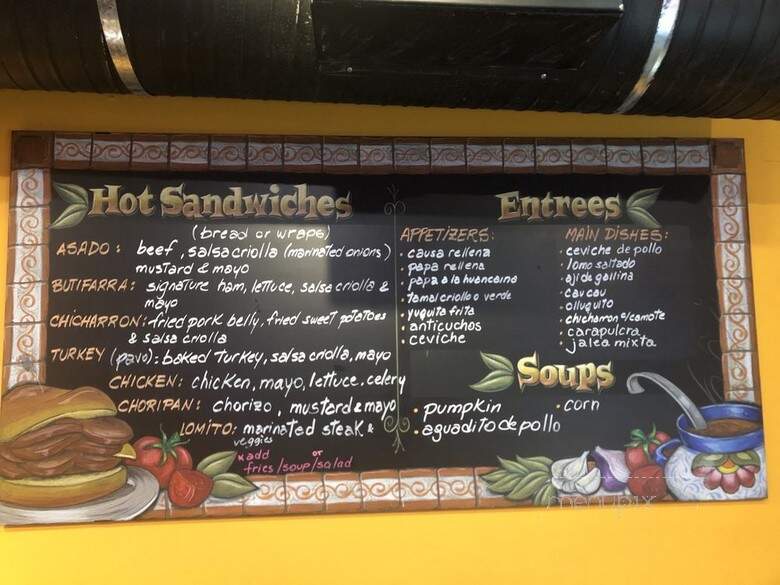 Hot Sandwiches
(bread or wraps)
ASADO: beef, salsa criolla (marinated onions)
mustard & mayo
BUTIFARRA: signature ham, lettuce, salsa criolla &
mayo
CHICHARRON: fried pork belly, fried sweet potatoes
& salsa criolla
TURKEY (pavo): baked turkey, salsa criolla, mayo
CHICKEN: chicken, mayo, lettuce, celery
CHORIPAN: chorizo, mustard & mayo
LOMITO: marinated steak &
veggies
*add or
fries/soup/salad
Entrees
APPETIZERS:
· causa rellena
· papa rellena
· papa a la huancaina
· tamal criollo o verde
· yuquita frita
· anticuchos
· ceviche
MAIN DISHES:
· ceviche de pollo
· lomo saltado
· aji de gallina
· cau cau
· olluquito
· chicharron c/camote
· carapulcra
· jalea mixta
Soups
· pumpkin
· corn
· aguadito de pollo
menupix